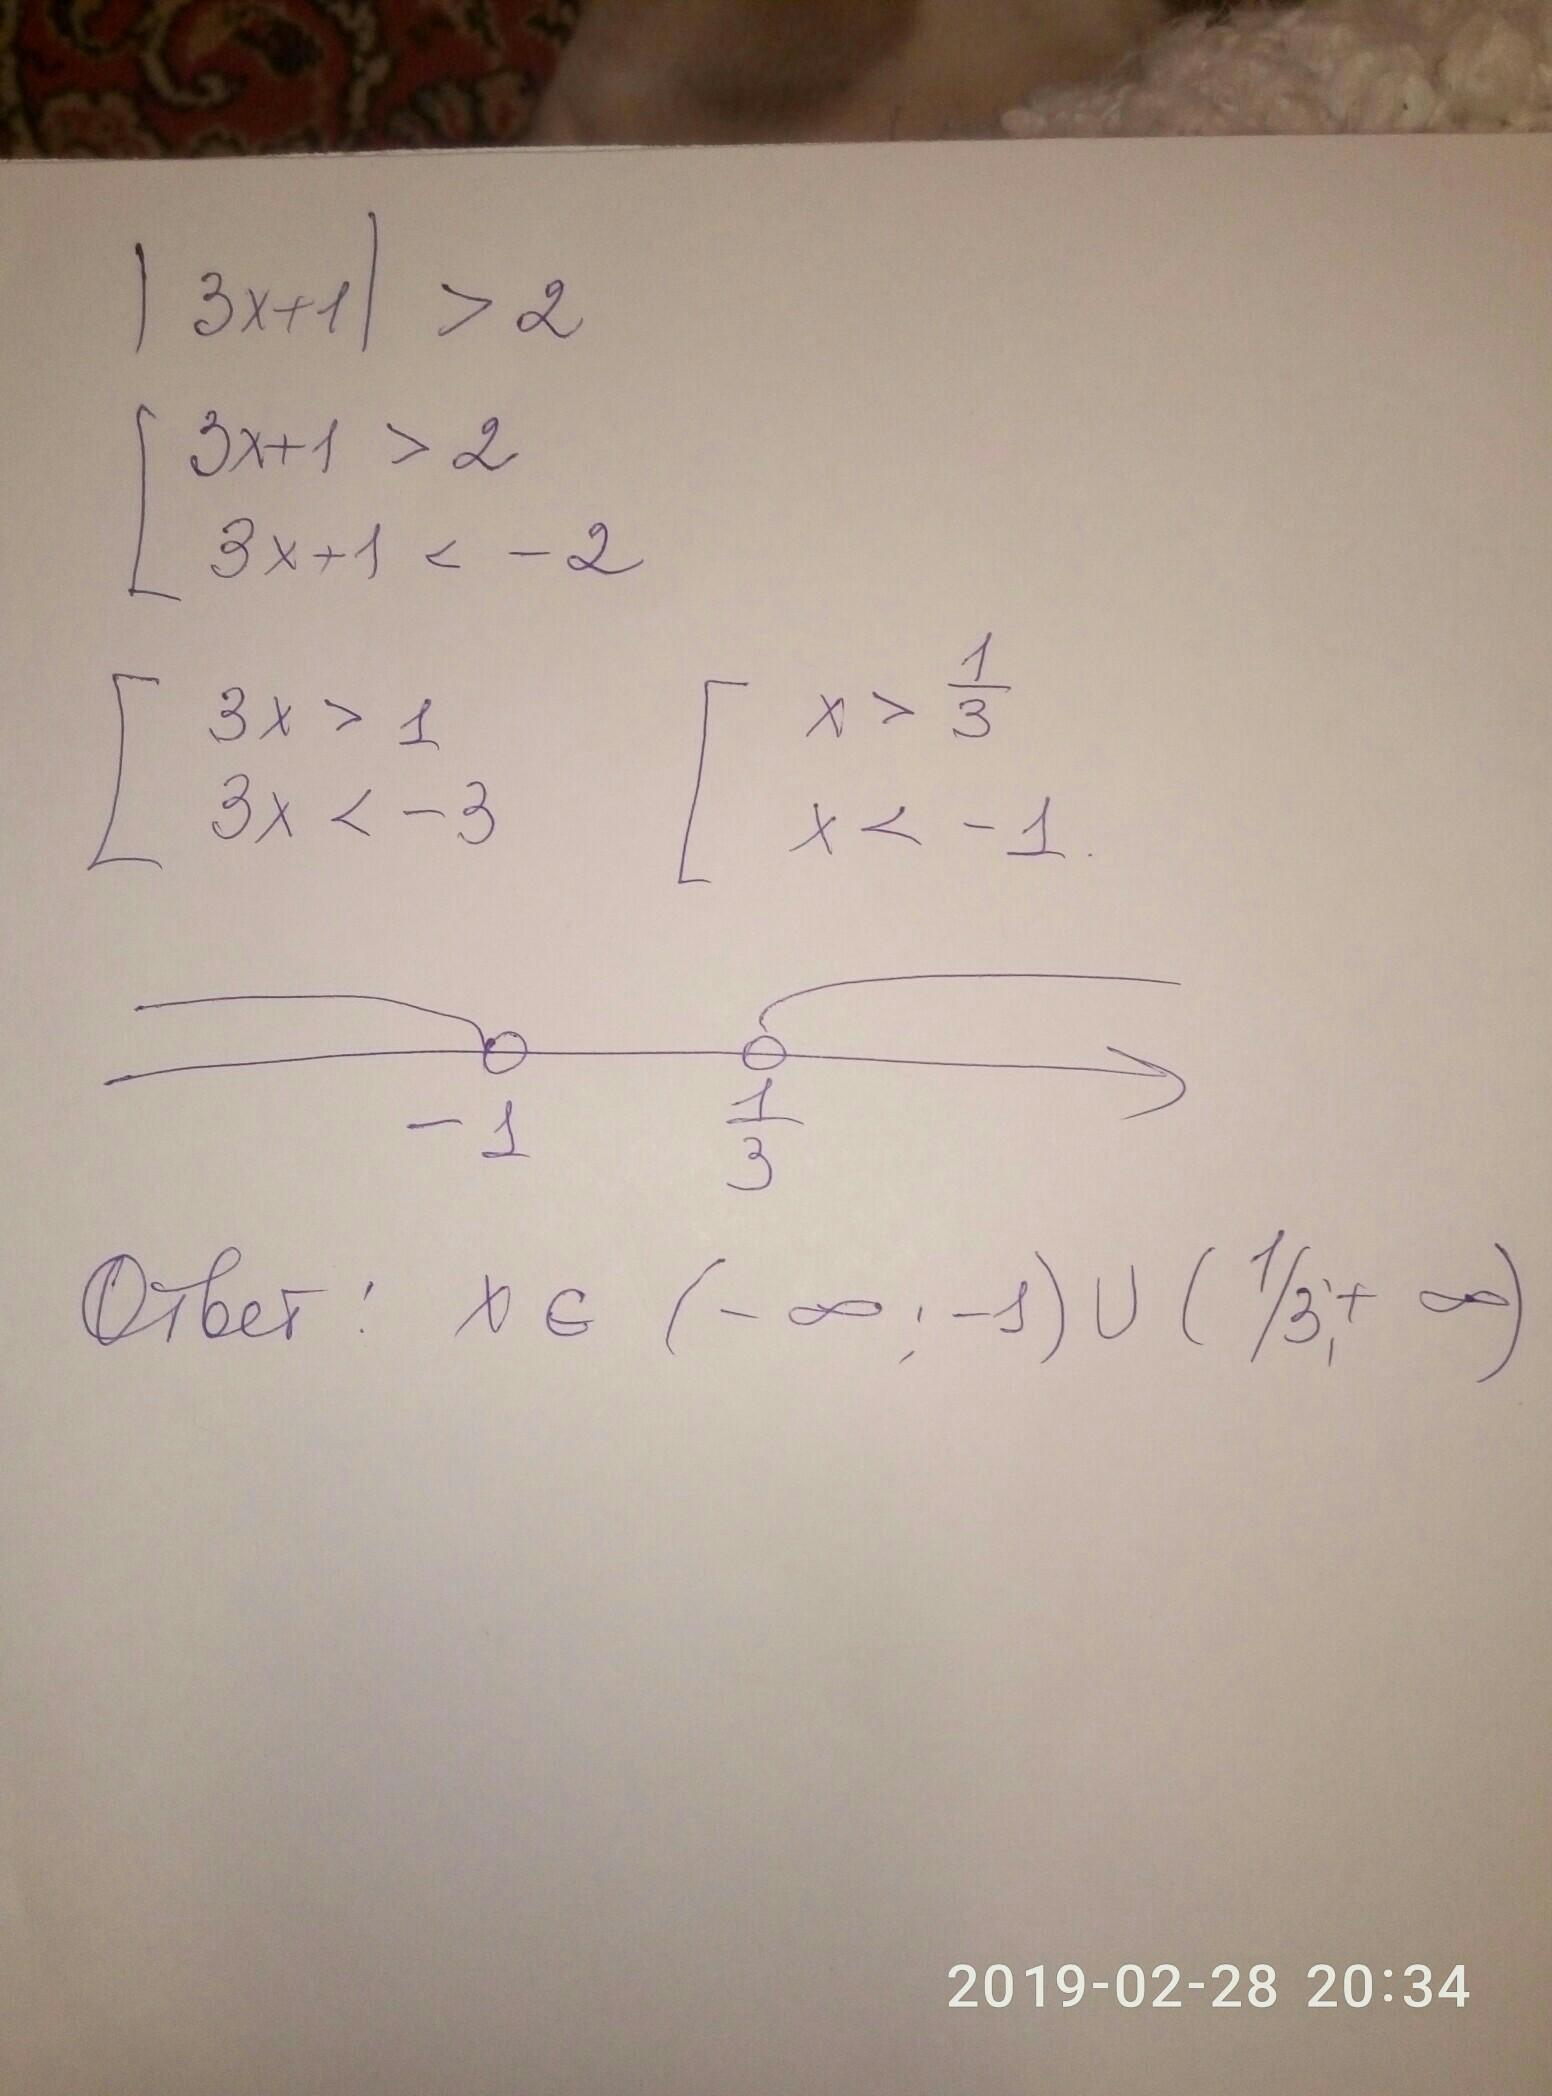 |3x+1| > 2
[ 3x+1 > 2
3x+1 < -2
[ 3x > 1 [ x > 1/3
3x < -3 x < -1.
-1 1/3
Ответ: x ∈ (-∞; -1) ∪ (1/3; +∞)
2019-02-28 20:34